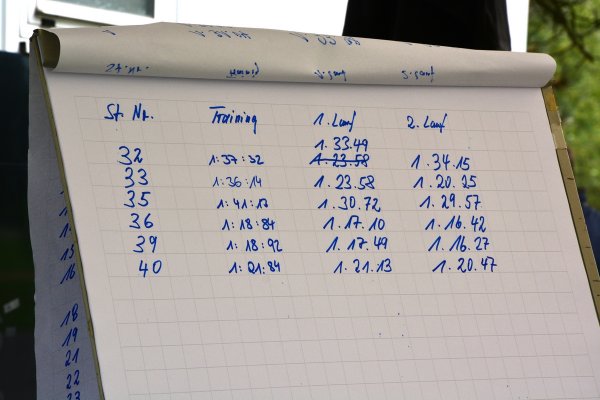 St. Nr. Training 1. Lauf 2. Lauf
1.33.49
32 1:37:32 1.23.58 1.34.15
33 1:36:14 1.23.58 1.20.25
35 1:41:17 1.30.72 1.29.57
36 1:18:84 1.17.10 1.16.42
39 1:18:92 1.17.49 1.16.27
40 1:21:84 1.21.13 1.20.47
18
19
21
22
23